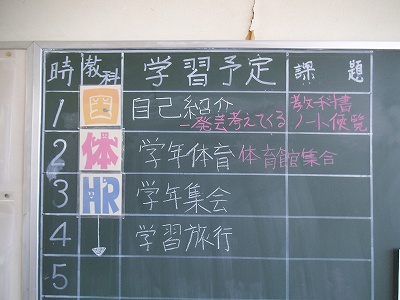 時 教科 学習予定 課題
1 国 自己紹介 教科書
一発芸考えてくる ノート 便覧
2 体 学年体育 体育館集合
3 HR 学年集会
4 学習旅行
5